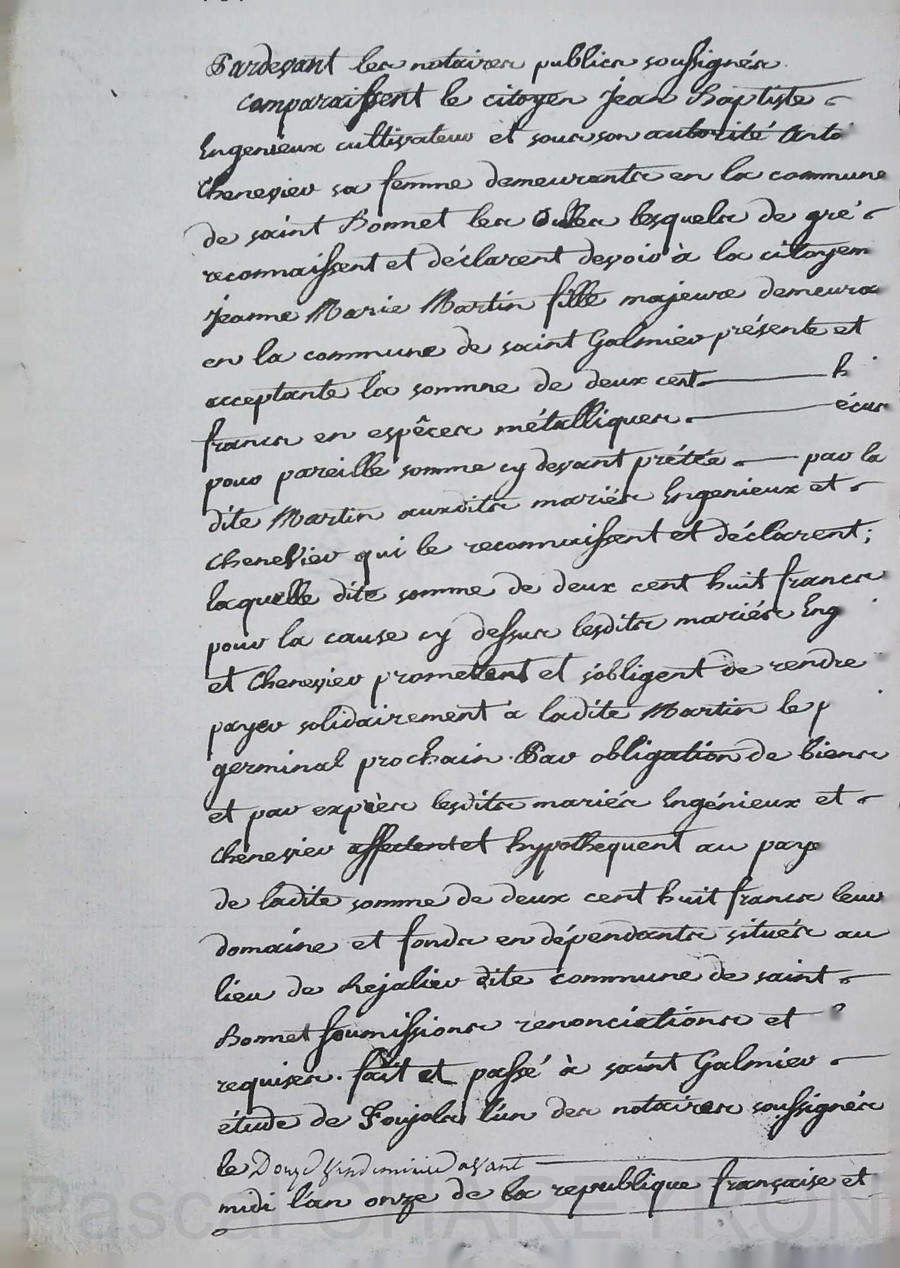 Pardevant les notaires publics soussignés
comparaissent le citoyen Jean Baptiste
Engenieux cultivateur et sous son autorité Anto
Chenevier sa femme demeurants en la commune
de saint Bonnet les Oulles lesquels de gré
reconnaissent et déclarent devoir à la citoyenn
Jeanne Marie Martin fille majeure demeura
en la commune de saint Galmier présente et
acceptante la somme de deux cent h
francs en espêces métalliques écus
pour pareille somme cy devant prétée par la
dite Martin auxdits mariés Engenieux et
Chenevier qui le reconnaissent et déclarent;
laquelle dite somme de deux cent huit francs
pour la cause cy dessus lesdits mariés Eng
et Chenevier promettent et s'obligent de rendre
payer solidairement à ladite Martin le p
germinal prochain. Par obligation de biens
et par exprès lesdits mariés Engénieux et
Chenevier affectent et hypothequent au paye
de ladite somme de deux cent huit francs leur
domaine et fonds en dépendants situés au
lieu de Rejalier dite commune de saint
Bonnet soumissions renonciations et
requises. fait et passé à saint Galmier
étude de Foujols l'un des notaires soussignés
le Douze vendemiaire avant
midi l'an onze de la republique française et
Pascal CHAREYRON